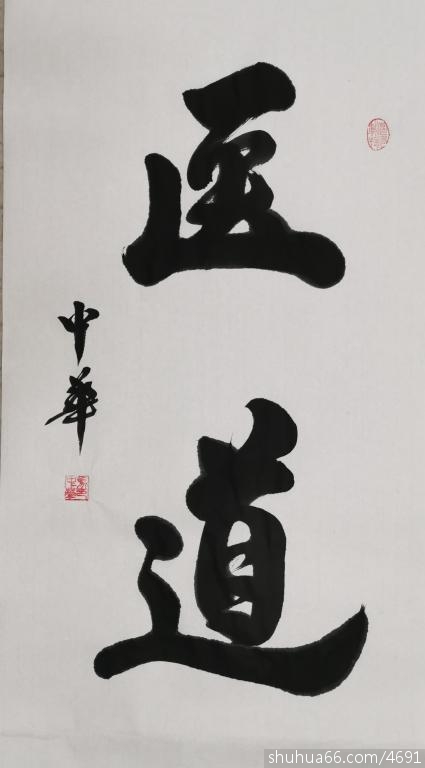 医道
中華
shuhua66.com/4691